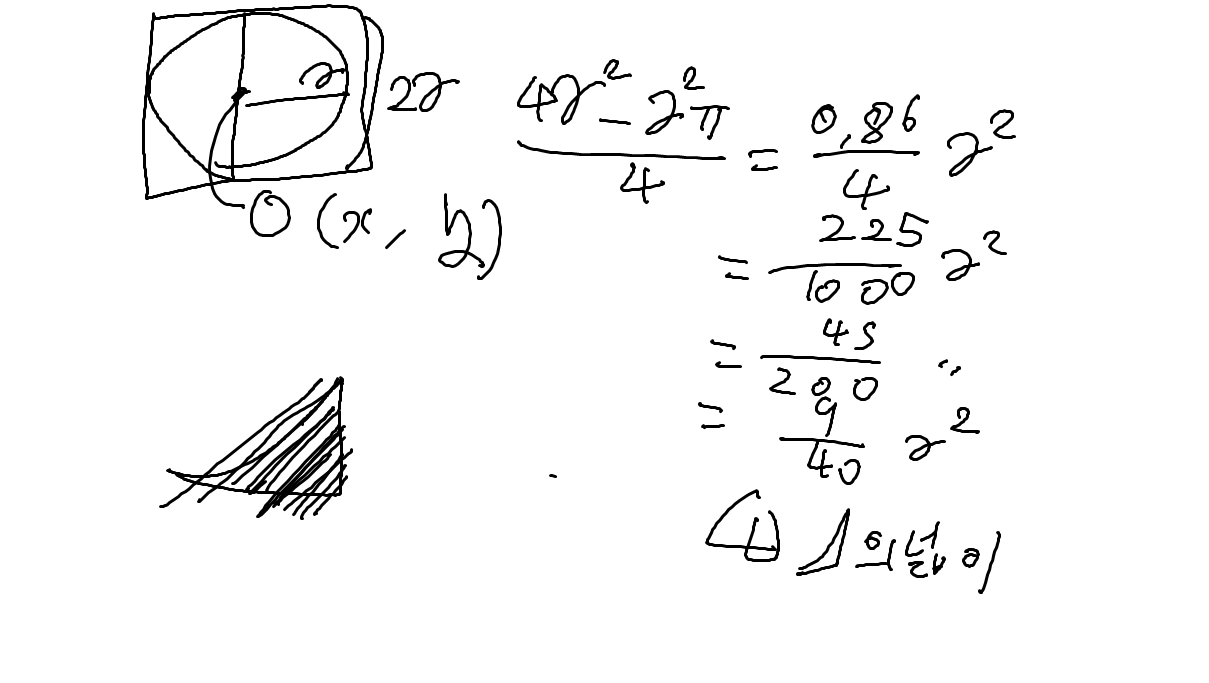 r
2r
O (x, y)
(4r² - r²π)/4 = 0.86/4 r²
= 225/1000 r²
= 45/200 〃
= 9/40 r²
의 넓이